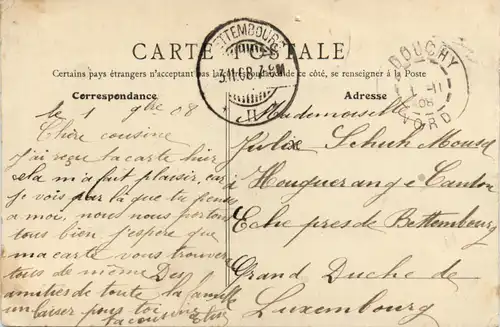 CARTE POSTALE
Certains pays étrangers n'acceptant pas la correspondance de ce côté, se renseigner à la Poste
Correspondance
Adresse
BETTEMBOURG
3.11.08
DOUCHY
1 -11
08
NORD
le 1 9bre 08
Chère cousine
j'ai reçue la carte hier
ela m'a fait plaisir, car
je vois par là que tu pense
a moi, nous nous portons
tous bien j'espère que
ma carte vous trouvera
tous de même Des
amitiés de toute la famille
un baiser pour toi
ta cousine
Mademoiselle
Julie Schuh Mousq
à Houguerang Canton
Eche pres de Bettembourg
Grand Duché de
Luxembourg